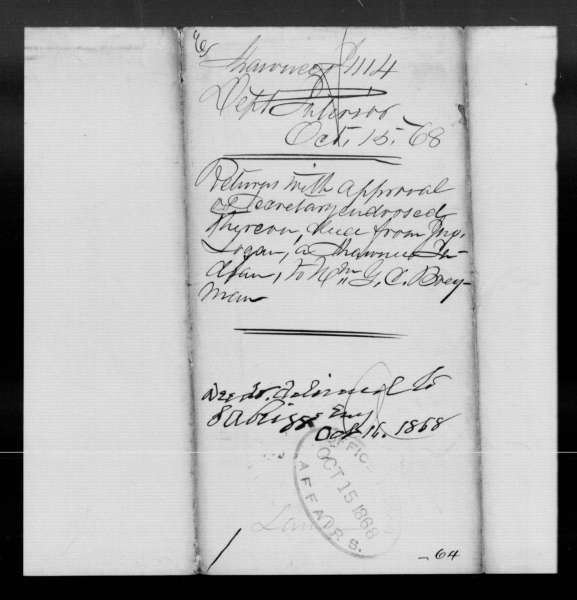 Shawnee J 1114
Dept Interior
Oct. 15. '68
Returns with approval
of Secretary endorsed
thereon, deed from Jno.
Logan, a Shawnee In-
dian, to Wm G. C. Brey-
man
Deed delivered to
S A Riggs Esq
Oct 16. 1868
OFFICE
OCT 15 1868
AFFAIRS.
Land
64